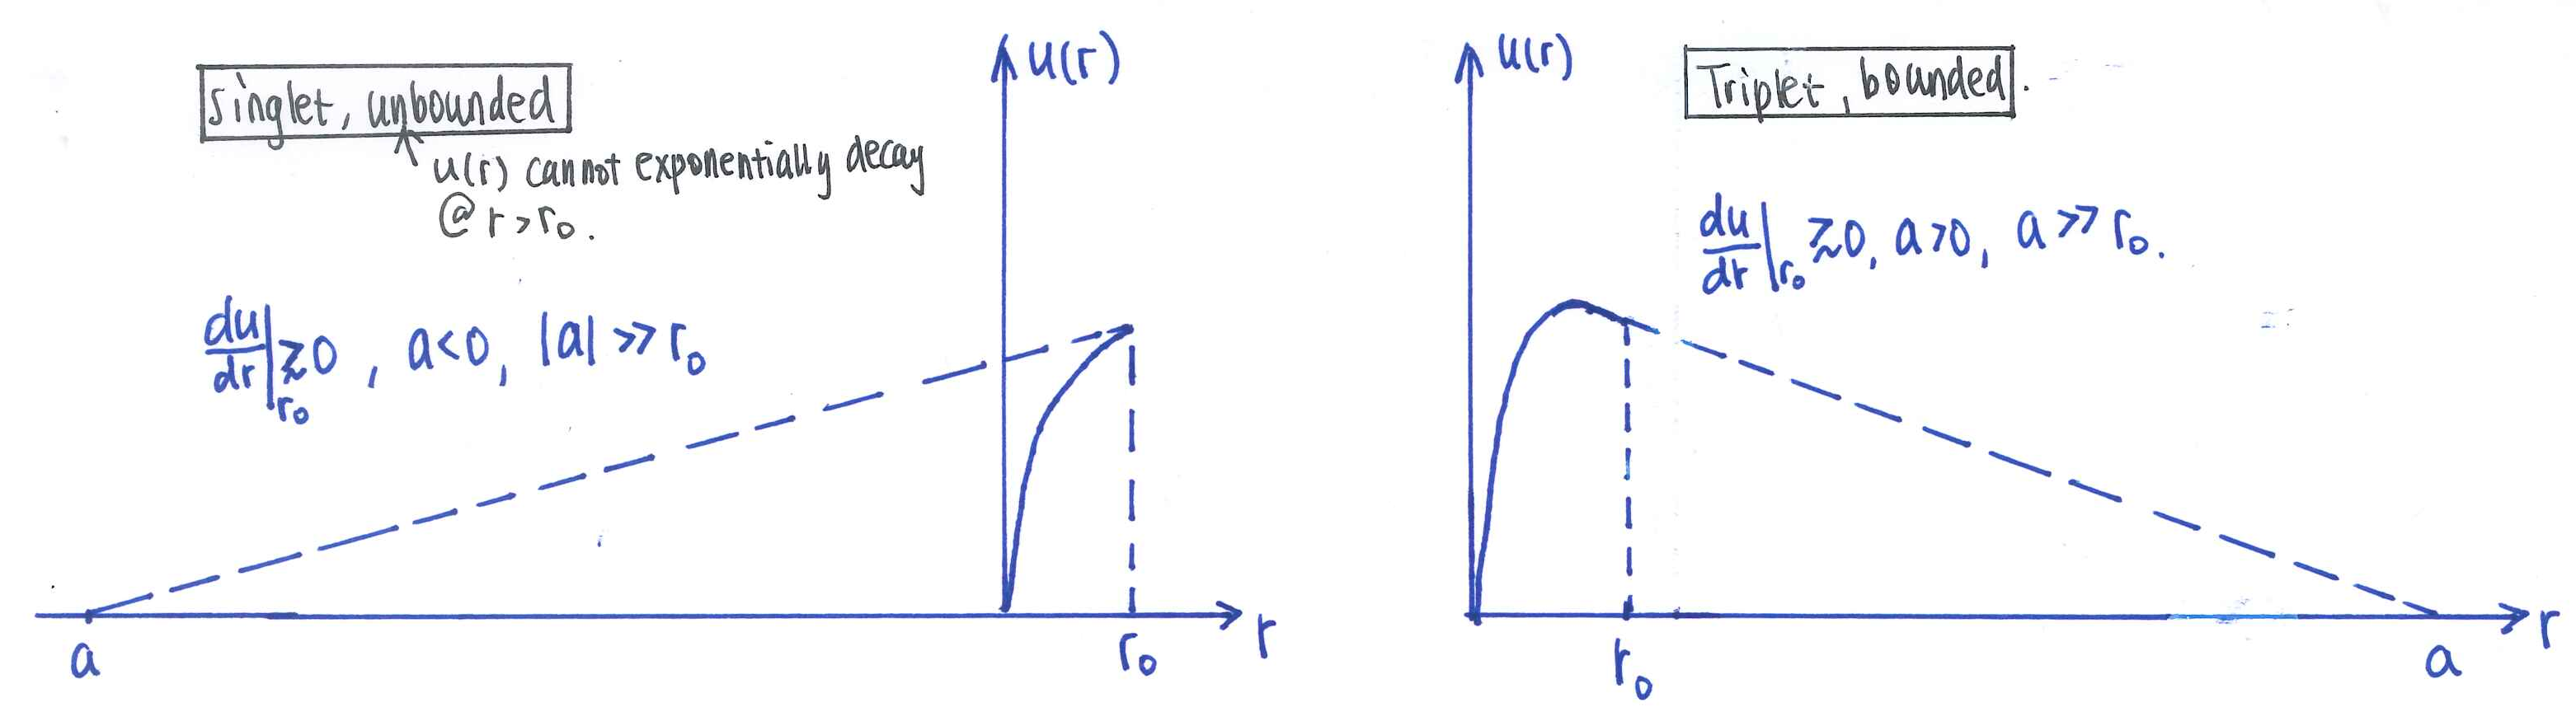 singlet, unbounded
u(r) cannot exponentially decay
@ r > r₀.
du/dr|r₀ ≳ 0, a<0, |a| >> r₀
u(r)
a
r₀
r
u(r)
Triplet, bounded.
du/dr|r₀ ≳ 0, a>0, a >> r₀.
r₀
a
r